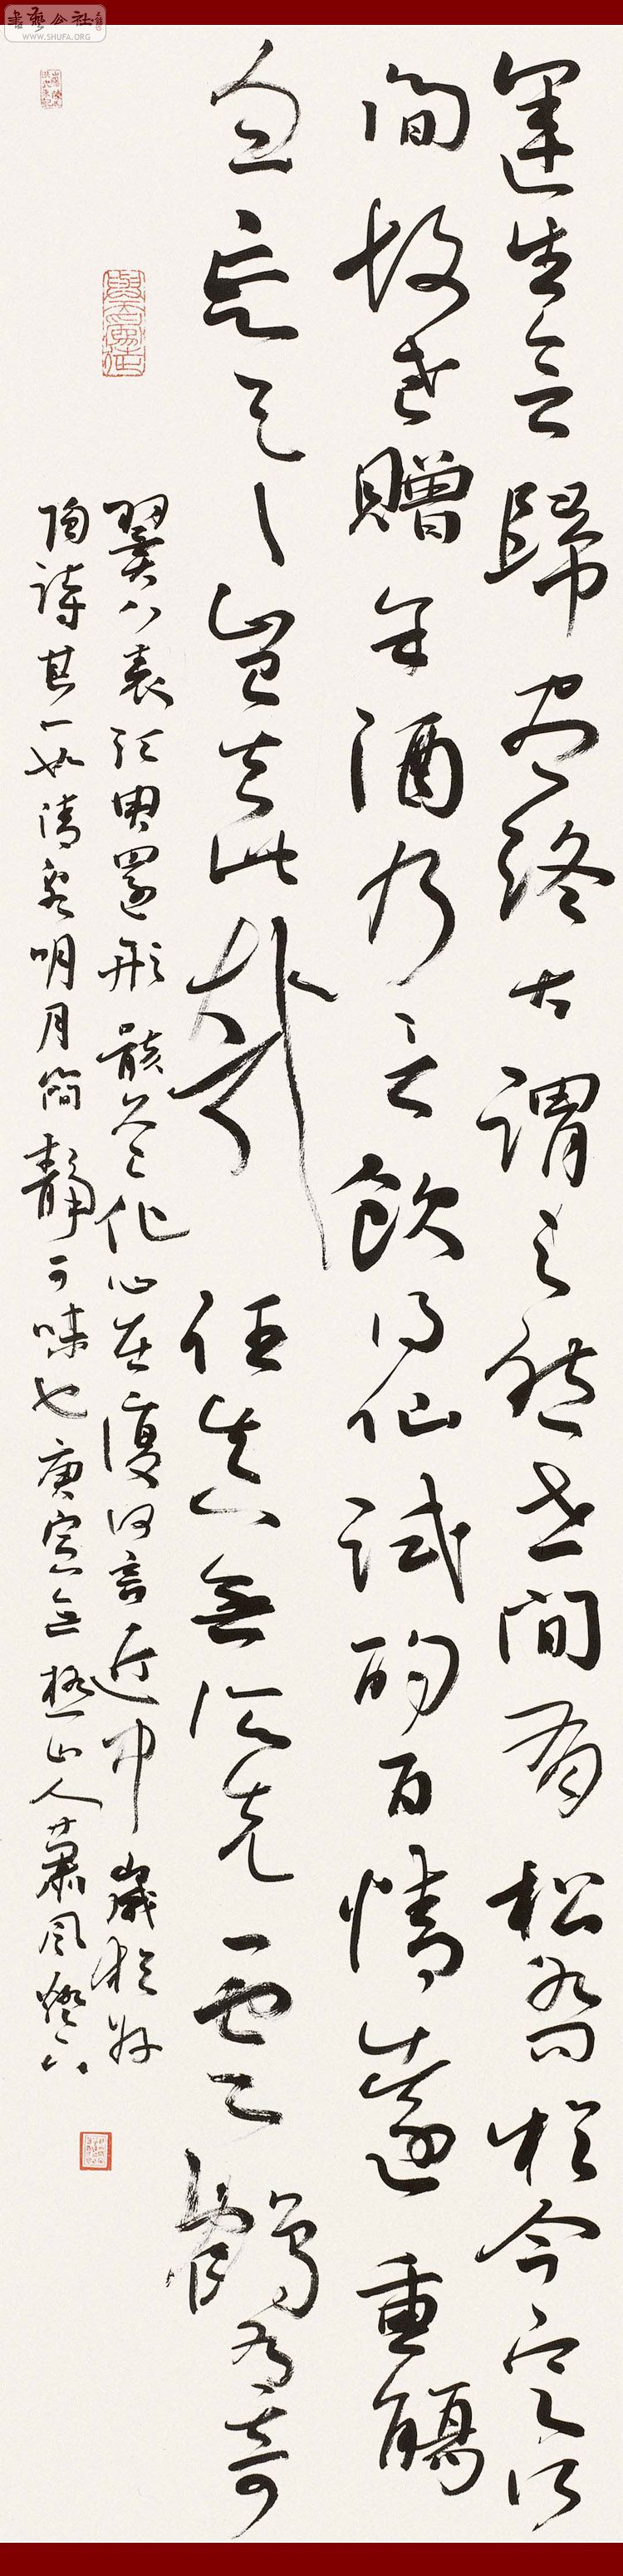 書藝公社
WWW.SHUFA.ORG
運生會歸盡終古謂之然世間有松喬於今定何
間故老贈余酒乃言飲得仙試酌百情遠重觴
忽忘天天豈去此哉任真無所先雲鶴有奇
翼八表須臾還形骸久已化心在復何言近中歲於好
陶詩其一如清泉明月簡靜可味也庚寅無極山人蕭風燈下